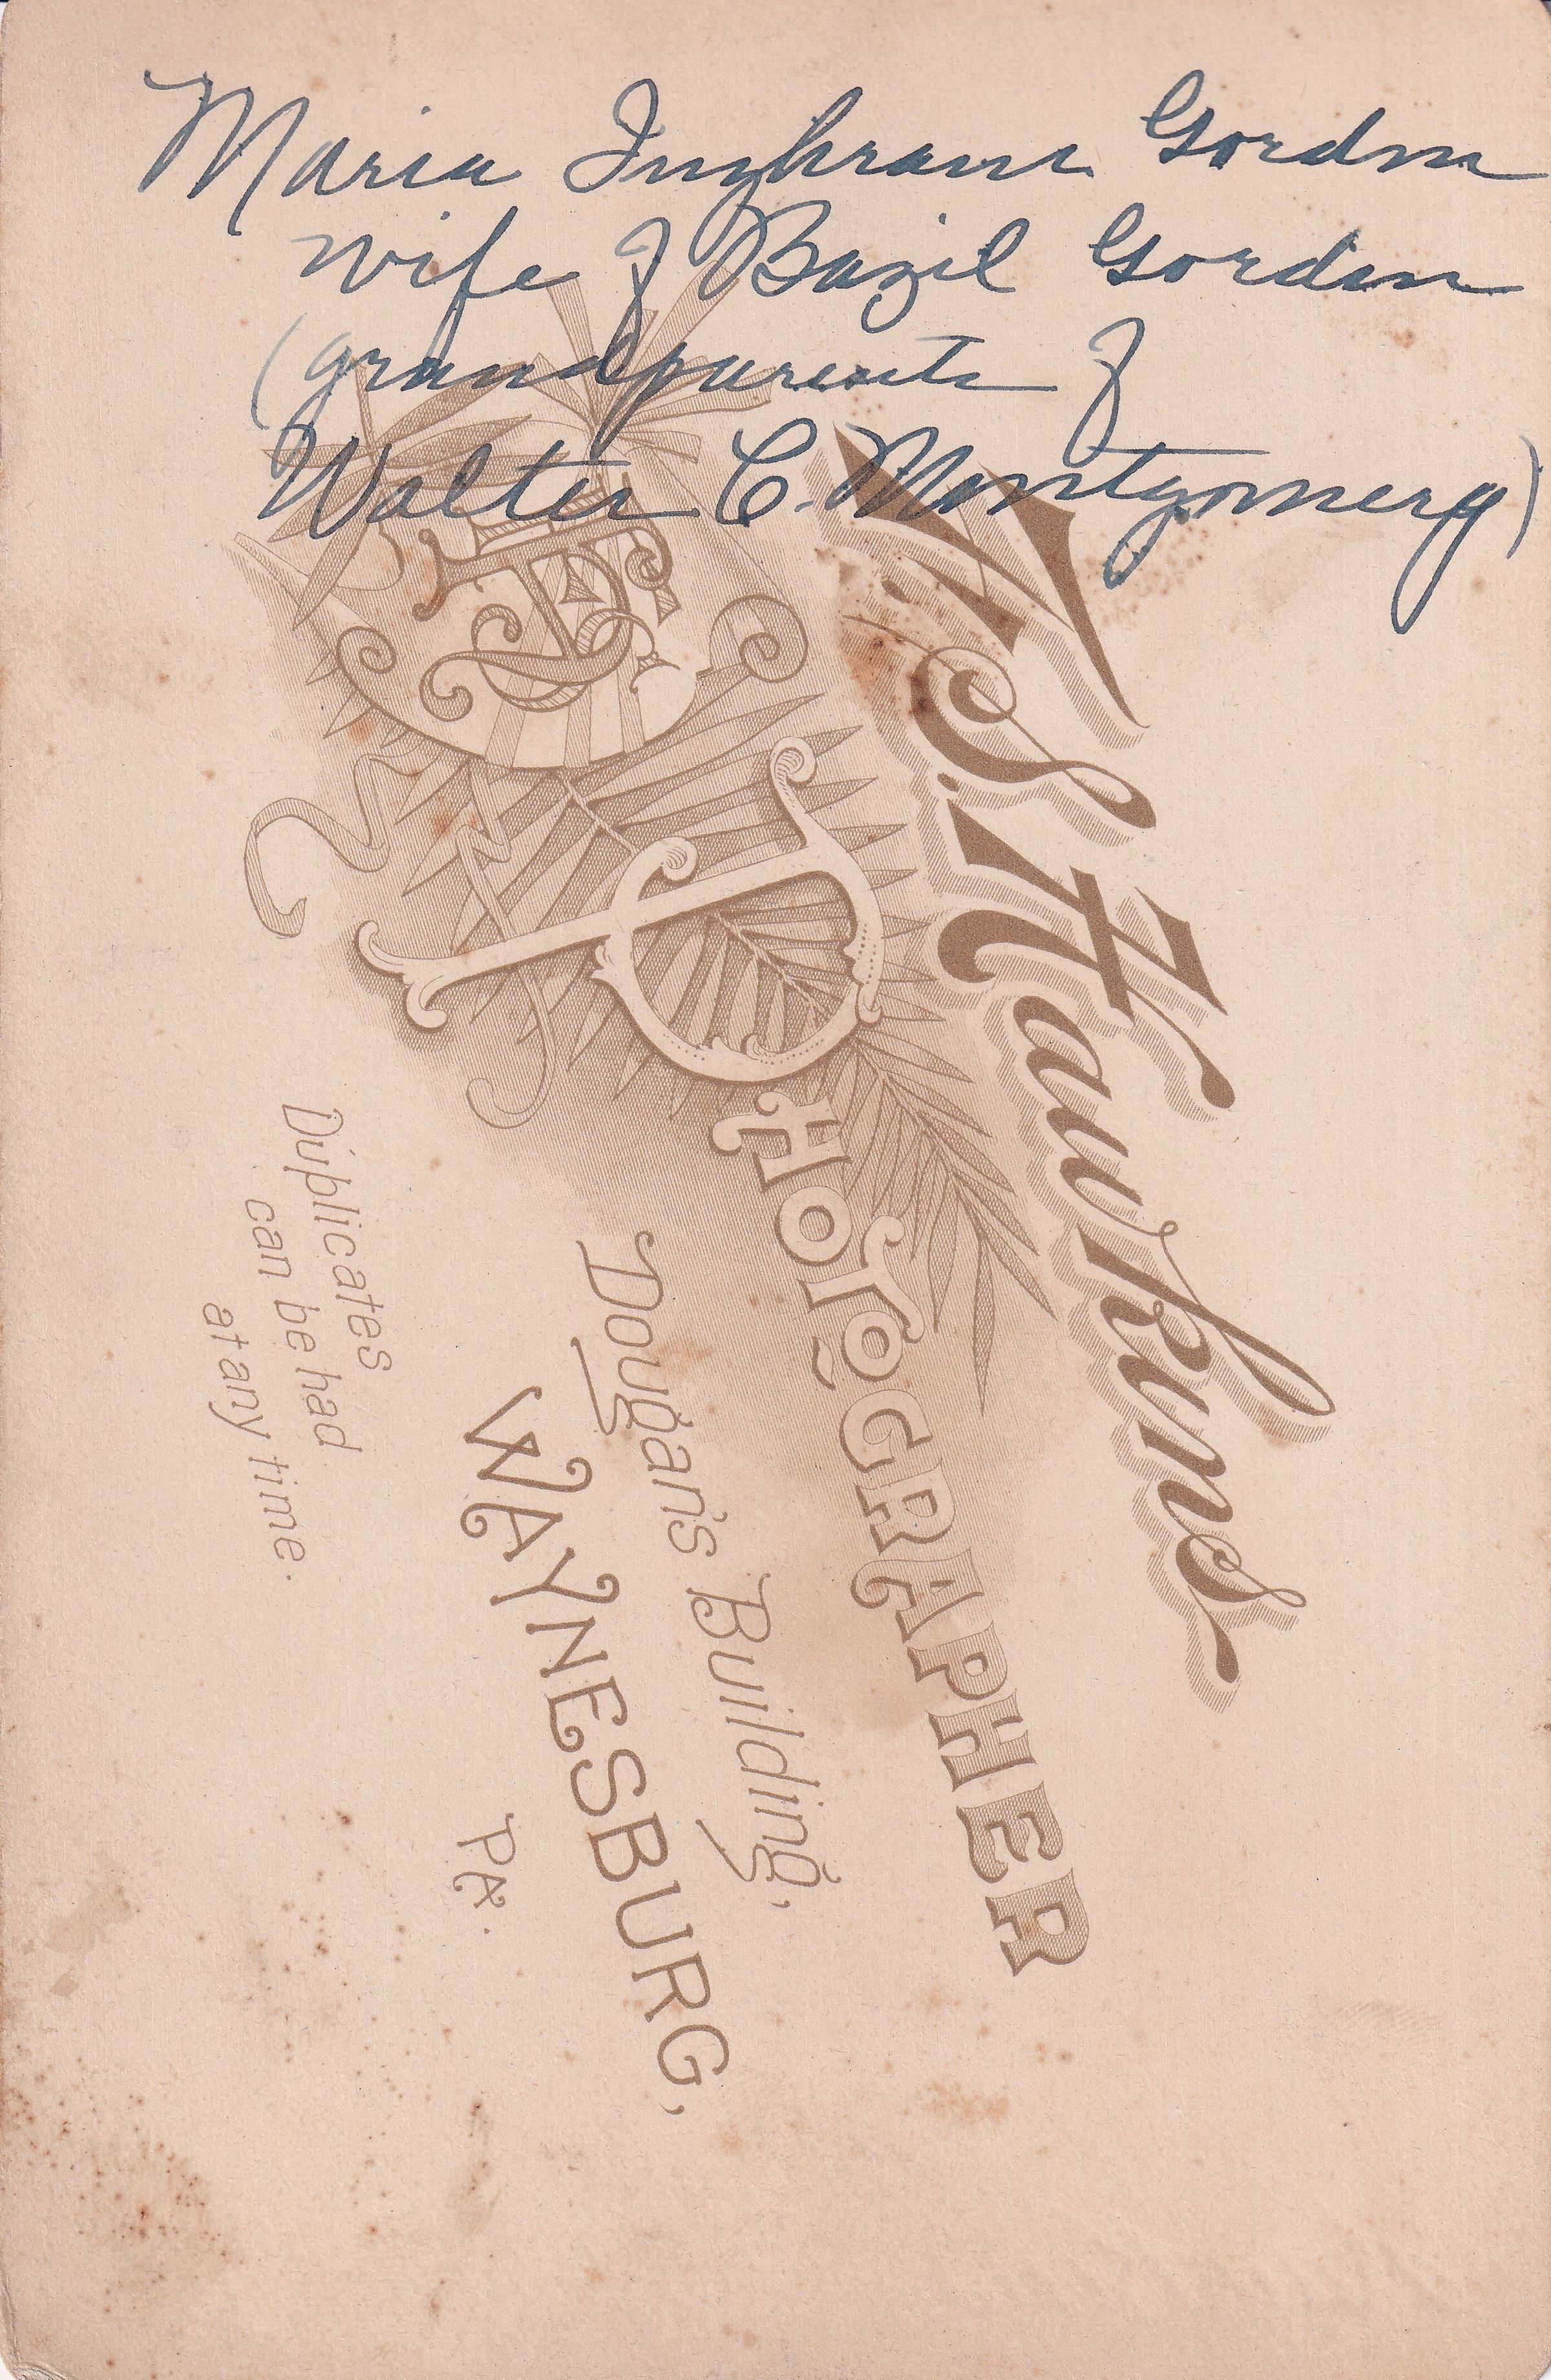 Maria Inghram Gordon
wife of Bazil Gordon
(grandparents of
Walter C. Montgomery)
W. S. Hawkins
PHOTOGRAPHER
Dougan's Building,
WAYNESBURG,
Pa.
Duplicates
can be had
at any time.